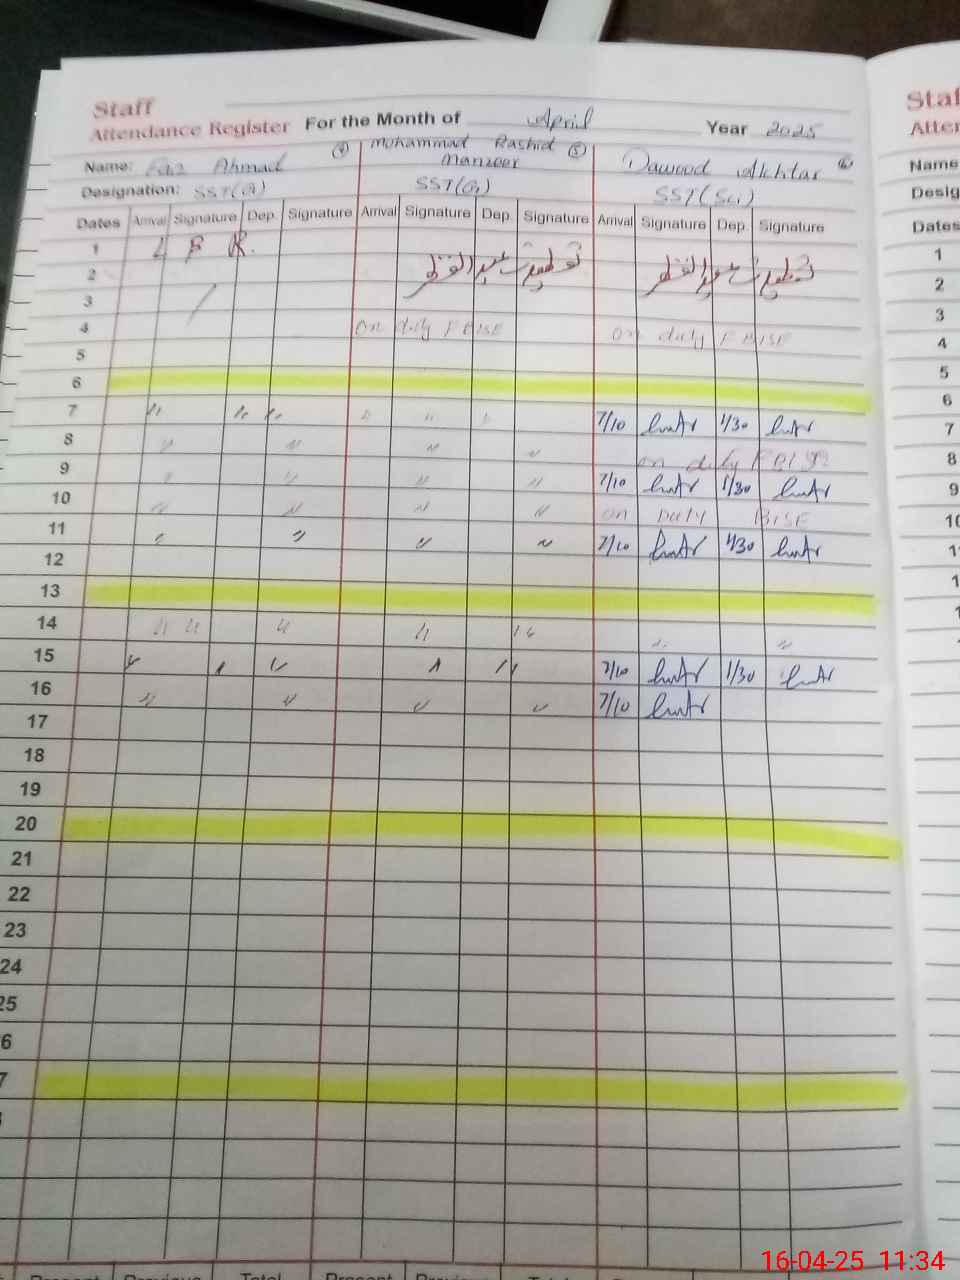 Staff
Attendance Register For the Month of April Year 2025
Name: Ahmad (4) Mohammad Rashid Manzoor (5) Dawood Akhtar (6)
Designation: SST(G) SST(G) SST(Sci)
Dates Arrival Signature Dep. Signature Arrival Signature Dep. Signature Arrival Signature Dep. Signature
1 L P R.
2 تعطیلات عید الفطر تعطیلات عید الفطر
3
4 On duty FBISE on duty FBISE
5
6
7 " " " " " " 7/10 1/30
8 " " " " on duty FBISE
9 " " " " 7/10 1/30
10 " " " " on Duty BISE
11 " " " " 7/10 1/30
12
13
14 " " " " " " "
15 7/10 1/30
16 " " " " 7/10
17
18
19
20
21
22
23
24
25
6
7
Present Previous Total Present
Staf
Atter
Name
Desig
Dates
1
2
3
4
5
6
7
8
9
10
1
1
1
16-04-25 11:34